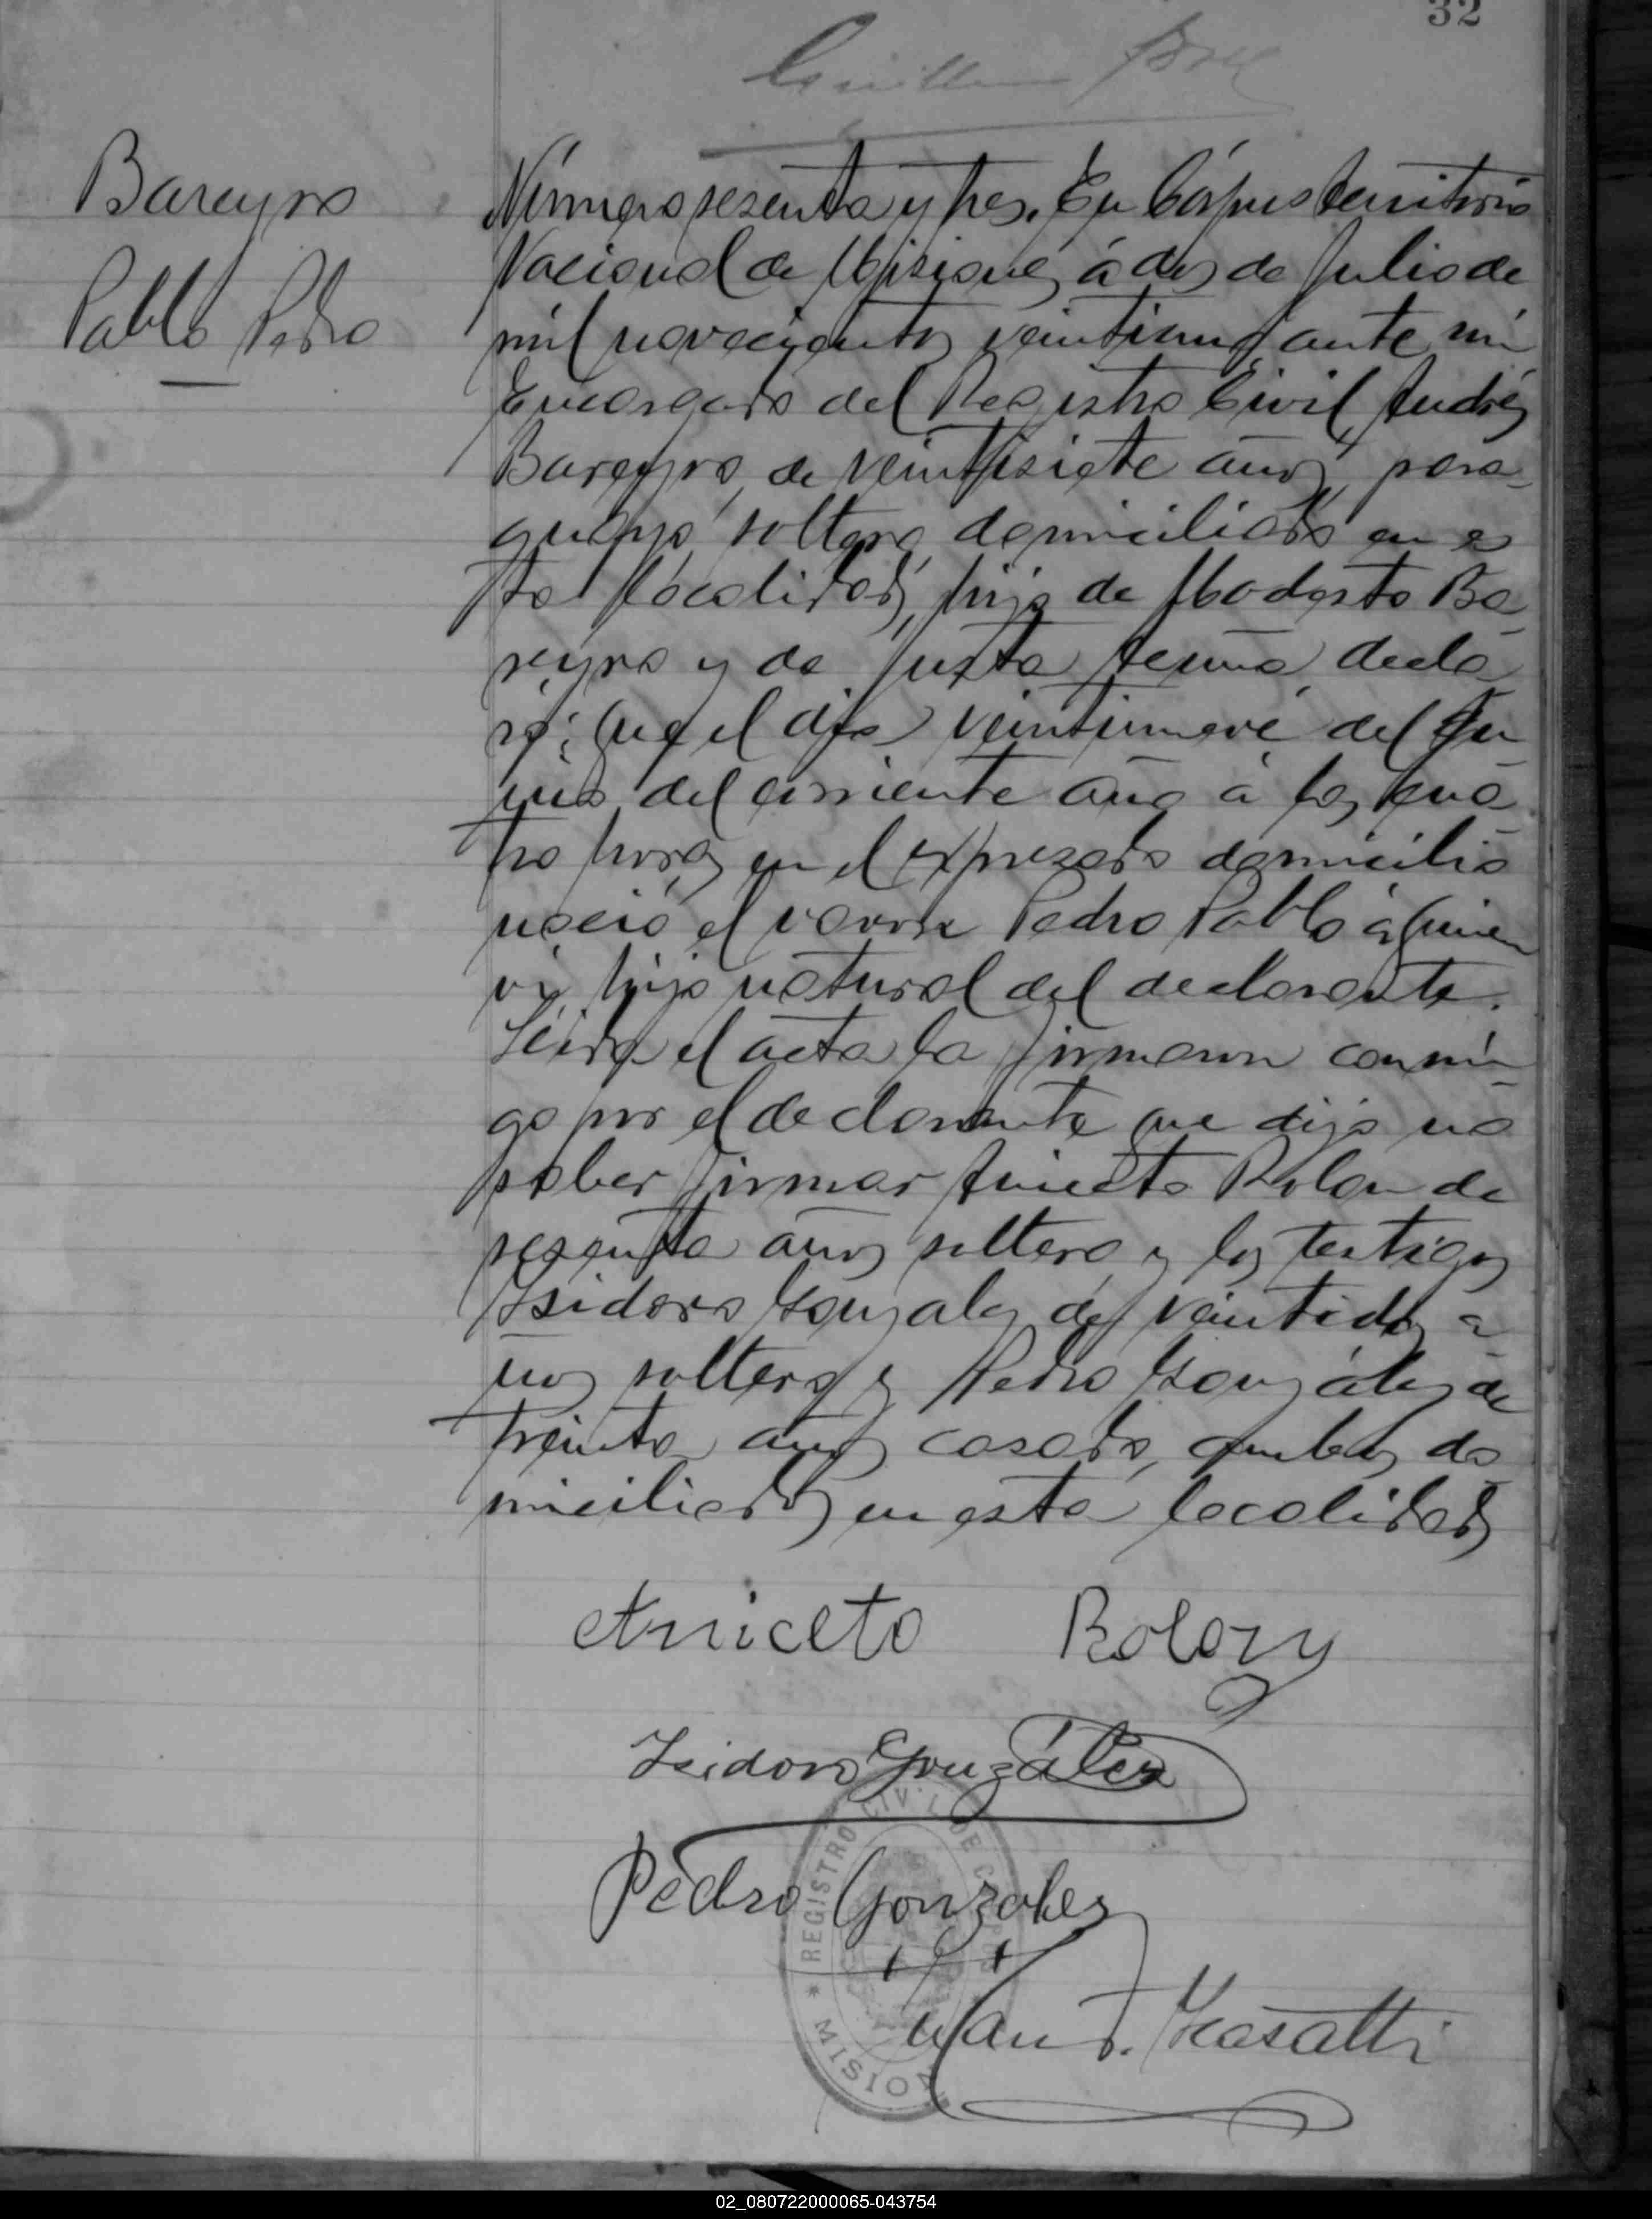 32
Bareyro
Pablo Pedro
Número sesenta y tres. En Córpus territorio
Nacional de Misiones, á dos de Julio de
mil novecientos veintiuno, ante mi
Encargado del Registro Civil, Andrés
Bareyro, de veintisiete años, para-
guayo, soltero, domiciliado en es
ta localidad, hijo de Modesto Ba-
reyro y de Justa decla-
ró: Que el dia veintinueve del Ju
nio del corriente año á las cua-
tro horas en el exprezado domicilio
nació el varon Pedro Pablo á quien
vi, hijo natural del declarante.
Leida el acta la firmaron conmi-
go por el declarante que dijo no
saber firmar Aniceto Rolon de
sesenta años soltero y los testigos
Isidoro Gonzalez de veintidos a-
ños soltero y Pedro González de
treinta años casado, ambos do
miciliados en esta localidad
Aniceto Rolon
Isidoro González
Pedro Gonzalez
REGISTRO CIVIL DE
MISION